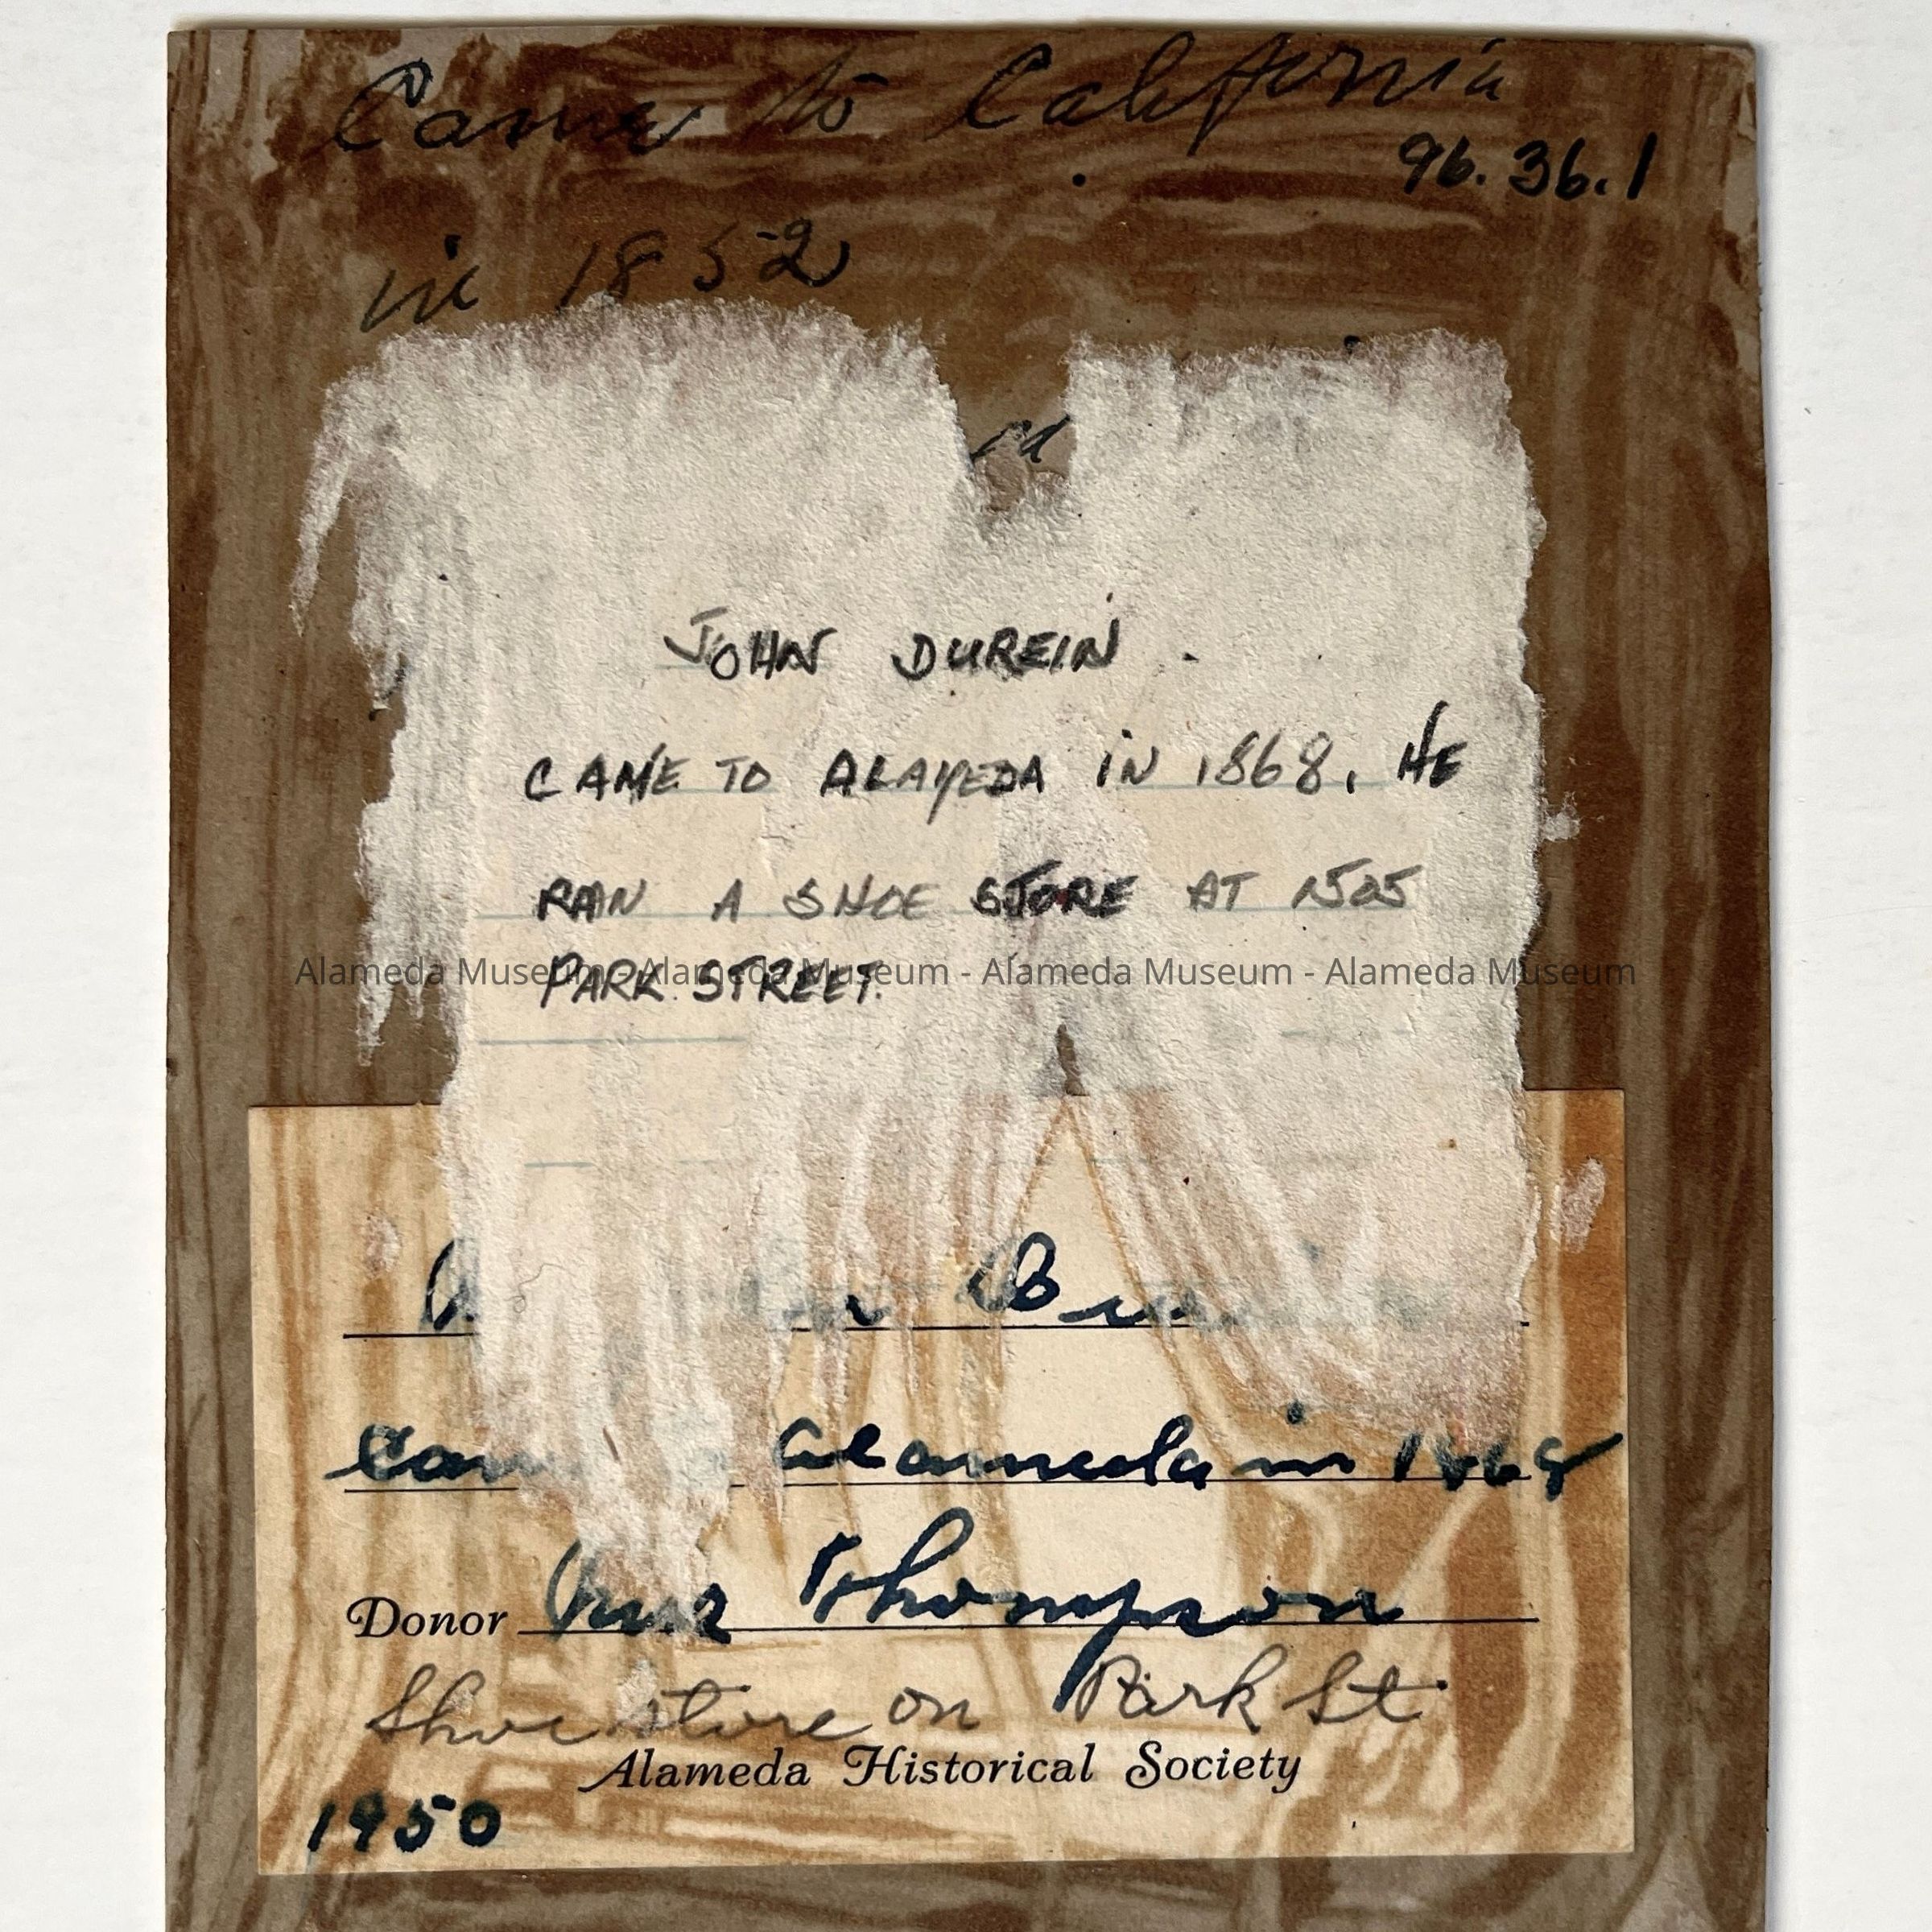 Came to California
96.36.1
in 1852
JOHN DUREIN
CAME TO ALAMEDA IN 1868. HE
RAN A SHOE STORE AT 1505
PARK STREET.
Alameda Museum - Alameda Museum - Alameda Museum - Alameda Museum
Alameda in 1868
Donor Mrs Thompson
Shoe store on Park St
Alameda Historical Society
1950